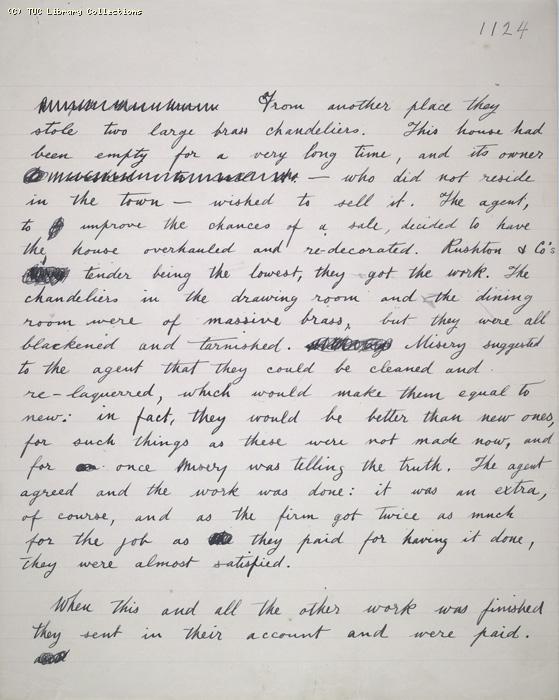 (C) TUC Library Collections
1124
From another place they
stole two large brass chandeliers. This house had
been empty for a very long time, and its owner
— who did not reside
in the town — wished to sell it. The agent,
to improve the chances of a sale, decided to have
the house overhauled and re-decorated. Rushton & Co's
tinder being the lowest, they got the work. The
chandeliers in the drawing room and the dining
room were of massive brass, but they were all
blackened and tarnished. Misery suggested
to the agent that they could be cleaned and
re-laquerred, which would make them equal to
new: in fact, they would be better than new ones,
for such things as these were not made now, and
for once Misery was telling the truth. The agent
agreed and the work was done: it was an extra,
of course, and as the firm got twice as much
for the job as they paid for having it done,
they were almost satisfied.
When this and all the other work was finished
they sent in their account and were paid.